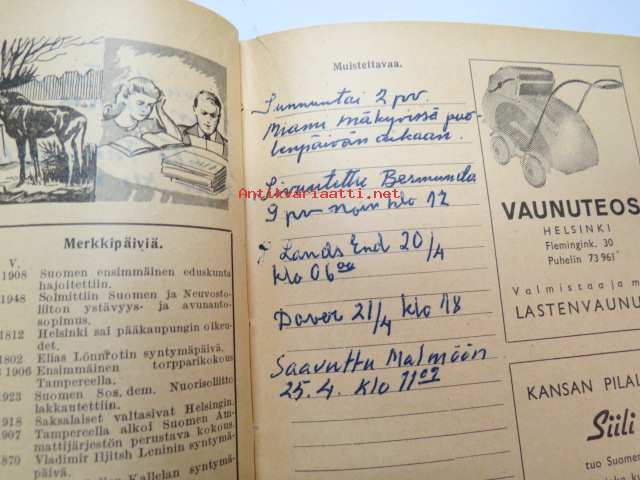 Merkkipäiviä.
V.
1908 Suomen ensimmäinen eduskunta
hajoitettiin.
1948 Solmittiin Suomen ja Neuvosto-
liiton ystävyys- ja avunanto-
sopimus.
1812 Helsinki sai pääkaupungin oikeu-
det.
1802 Elias Lönnrotin syntymäpäivä.
1906 Ensimmäinen torpparikokous
Tampereella.
1923 Suomen Sos. dem. Nuorisoliitto
lakkautettiin.
918 Saksalaiset valtasivat Helsingin.
907 Tampereella alkoi Suomen Am-
mattijärjestön perustava kokous.
870 Vladimir Iljitsh Leninin syntymä-
päivä.
Kallelan syntymä-
Muistettavaa.
Sunnuntai 2 pv.
Miami näkyvissä puo-
lenpäivän aikaan.
Sivuutettu Bermunda
9 pv noin klo 12
Lands End 20/4
klo 06 00
Dover 21/4 klo 18
Saavuttu Malmöön
25.4. klo 11 02
Antikvariaatti.net
VAUNUTEOS
HELSINKI
Flemingink. 30
Puhelin 73 961
Valmistaa ja m
LASTENVAUNU
KANSAN PILAL
Siili
tuo Suomen